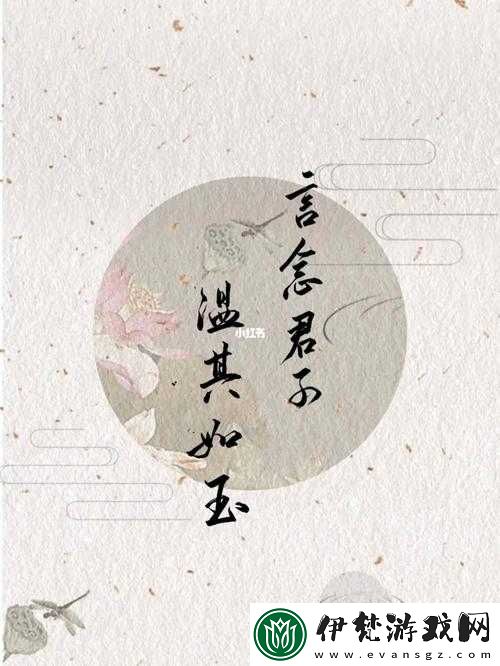 言念君子
溫其如玉
小红书
伊梵游戏网
www.evansgz.com